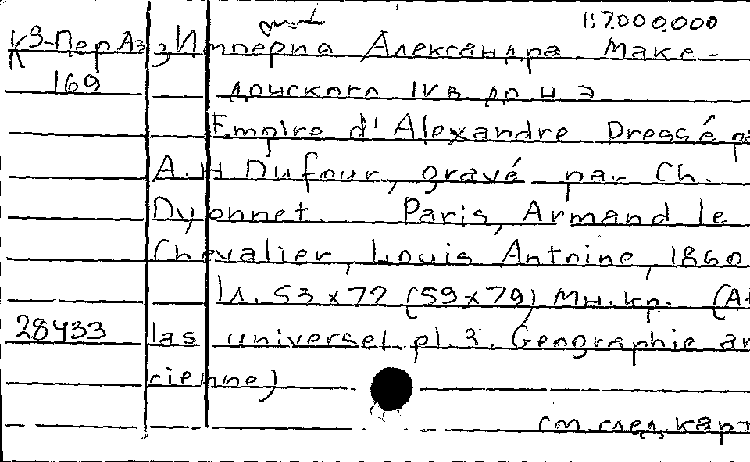 1:7.000.000
К 3-Пер Аз, Империа Александра Маке-
169 донского IV в до н э
Empire d'Alexandre Dressé pa
A. H Dufour, gravé par Ch.
Dyonnet Paris, Armand le
Chevalier, Louis Antoine, 1860
1 л. 53 x 77 (59 x 79) Мн. кр. (At
28433 las universel pl. 3. Geographie an
cienne)
см след карт